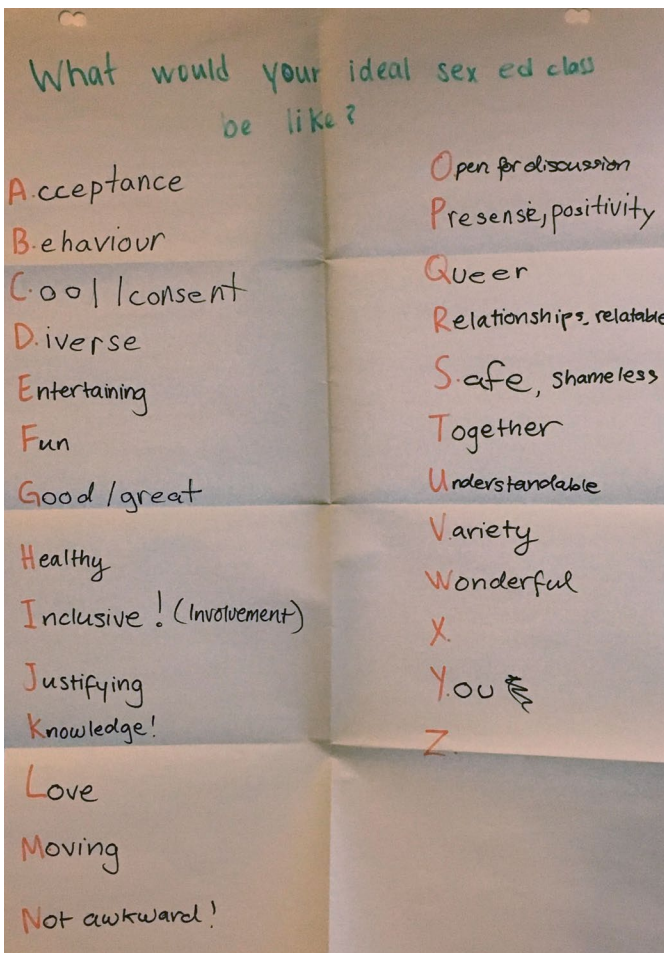 What would your ideal sex ed class
be like?
A.cceptance
B.ehaviour
C.ool/consent
D.iverse
Entertaining
Fun
Good/great
Healthy
Inclusive! (Involvement)
Justifying
Knowledge!
Love
Moving
Not awkward!
Open for discussion
Presense, positivity
Queer
Relationships, relatable
S.afe, shameless
Together
Understandable
V.ariety
Wonderful
X.
Y.ou
Z.